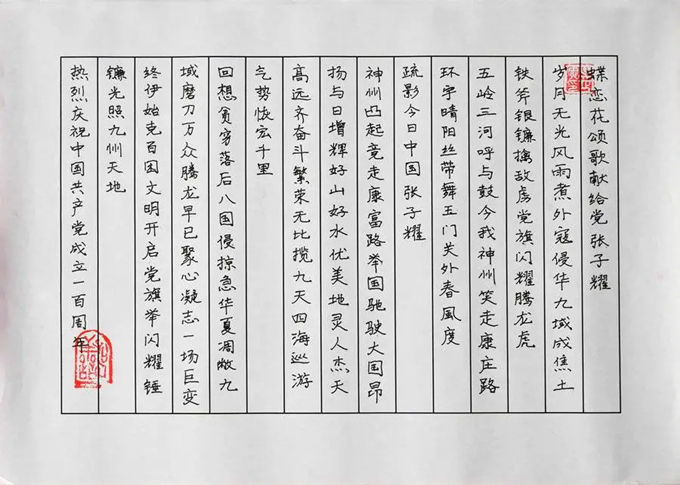 蝶恋花颂歌献给党 张子耀
岁月无光风雨煮外寇侵华九域成焦土
铁斧银镰擒敌虏党旗闪耀腾龙虎
五岭三河呼与鼓今我神州笑走康庄路
环宇晴阳丝带舞玉门关外春风度
疏影今日中国张子耀
神州凸起竟走康富路举国驰驶大国昂
扬与日增辉好山好水优美地灵人杰天
高远齐奋斗繁荣无比揽九天四海巡游
气势恢宏千里
回想贫穷落后八国侵掠急华夏凋敝九
域磨刀万众腾龙早已聚心凝志一场巨变
终伊始克百国文明开启党旗举闪耀锤
镰光照九州天地
热烈庆祝中国共产党成立一百周年